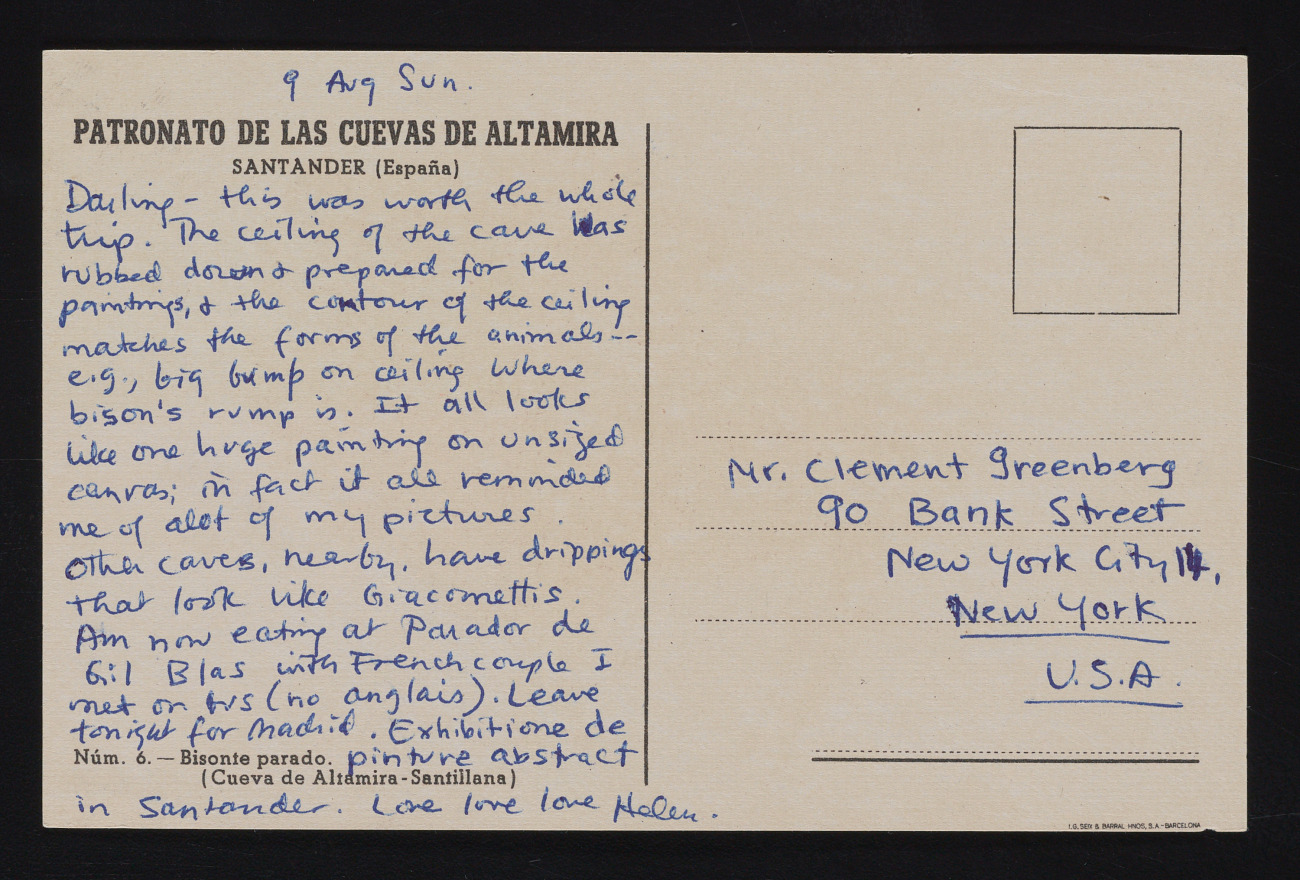 9 Aug Sun.
PATRONATO DE LAS CUEVAS DE ALTAMIRA
SANTANDER (España)
Darling - this was worth the whole
trip. The ceiling of the cave was
rubbed down & prepared for the
paintings, & the contour of the ceiling
matches the forms of the animals--
e.g., big bump on ceiling where
bison's rump is. It all looks
like one huge painting on unsized
canvas; in fact it all reminded
me of alot of my pictures.
Other caves, nearby, have drippings
that look like Giacomettis.
Am now eating at Parador de
Gil Blas with French couple I
met on bus (no anglais). Leave
tonight for Madrid. Exhibitione de
Núm. 6. — Bisonte parado. pinture abstract
(Cueva de Altamira - Santillana)
in Santander. Love love love Helen.
Mr. Clement Greenberg
90 Bank Street
New York City 14,
New York
U.S.A.
I.G. SEIX & BARRAL HNOS, S.A.-BARCELONA